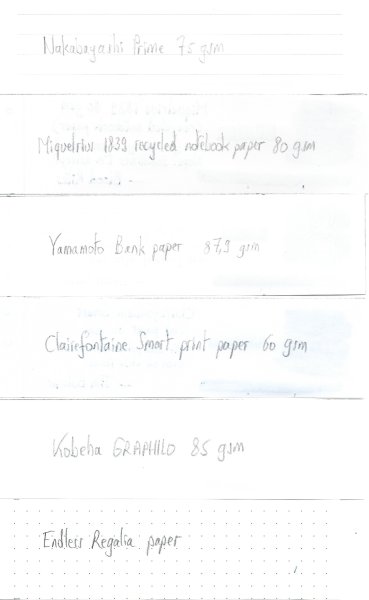 Nakabayashi Prime 75 gsm
Miquelrius 1839 recycled notebook paper 80 gsm
Yamamoto Bank paper 87,9 gsm
Clairefontaine Smart print paper 60 gsm
Kobeha GRAPHILO 85 gsm
Endless Regalia paper